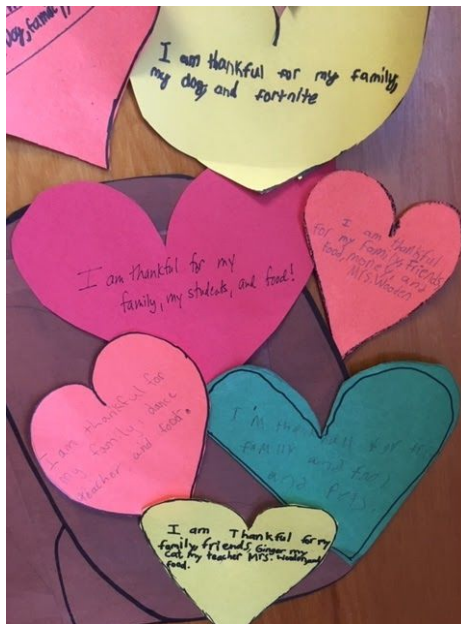 Dog, family
I am thankful for my family,
my dog, and fortnite
I am thankful for my
family, my students, and food!
I am thankful
for my family, friends,
food, money, and
Mrs. Wooden
I am thankful for
my family, dance
teacher, and food.
I'm thankful for
family and food
and
I am Thankful for my
family, friends, Ginger my
cat, my teacher Mrs. Wooden, and
food.